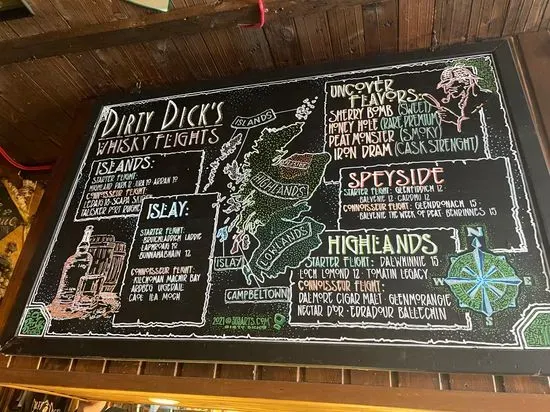 DIRTY DICK'S
WHISKY FLIGHTS
ISLANDS:
STARTER FLIGHT:
HIGHLAND PARK 12 · JURA 10 · ARRAN 10
CONNOISSEUR FLIGHT:
LEDAIG 18 · SCAPA
TALISKER PORT
ISLAY:
STARTER FLIGHT:
BRUICHLADDICH LADDIE
LAPHROAIG 10
BUNNAHABHAIN 12
CONNOISSEUR FLIGHT:
KILCHOMAN MACHIR BAY
ARDBEG UIGEDAIL
CAOL ILA MOCH
ISLANDS
HIGHLANDS
LOWLANDS
ISLAY
CAMPBELTOWN
UNCOVER
FLAVORS:
SHERRY BOMB (SWEET)
HONEY HOLE (RARE PREMIUM)
PEAT MONSTER (SMOKY)
IRON DRAM (CASK STRENGHT)
SPEYSIDE
STARTER FLIGHT: GLENFIDDICH 12
BALVENIE 12 · CARDHU 12
CONNOISSEUR FLIGHT: GLENDRONACH 15
BALVENIE THE WEEK OF PEAT · BENRINNES 15
HIGHLANDS
STARTER FLIGHT: DALWHINNIE 15
LOCH LOMOND 12 · TOMATIN LEGACY
CONNOISSEUR FLIGHT:
DALMORE CIGAR MALT · GLENMORANGIE
NECTAR D'OR · EDRADOUR BALLECHIN
2021
DIRTY DICKS